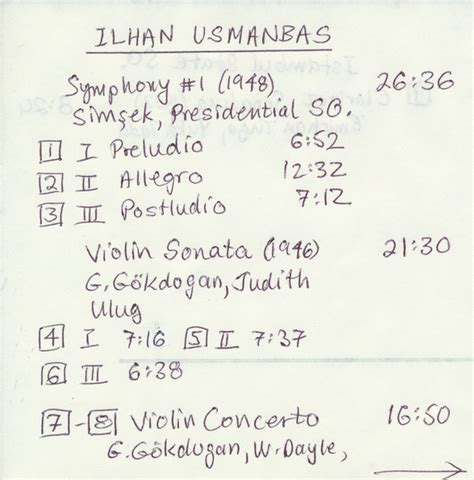 ILHAN USMANBAS
Symphony #1 (1948) 26:36
Simşek, Presidential SO.
1 I Preludio 6:52
2 II Allegro 12:32
3 III Postludio 7:12
Violin Sonata (1946) 21:30
G.Gökdogan, Judith
Ulug
4 I 7:16 5 II 7:37
6 III 6:38
7-8 Violin Concerto 16:50
G.Gökdogan, W.Dayle,